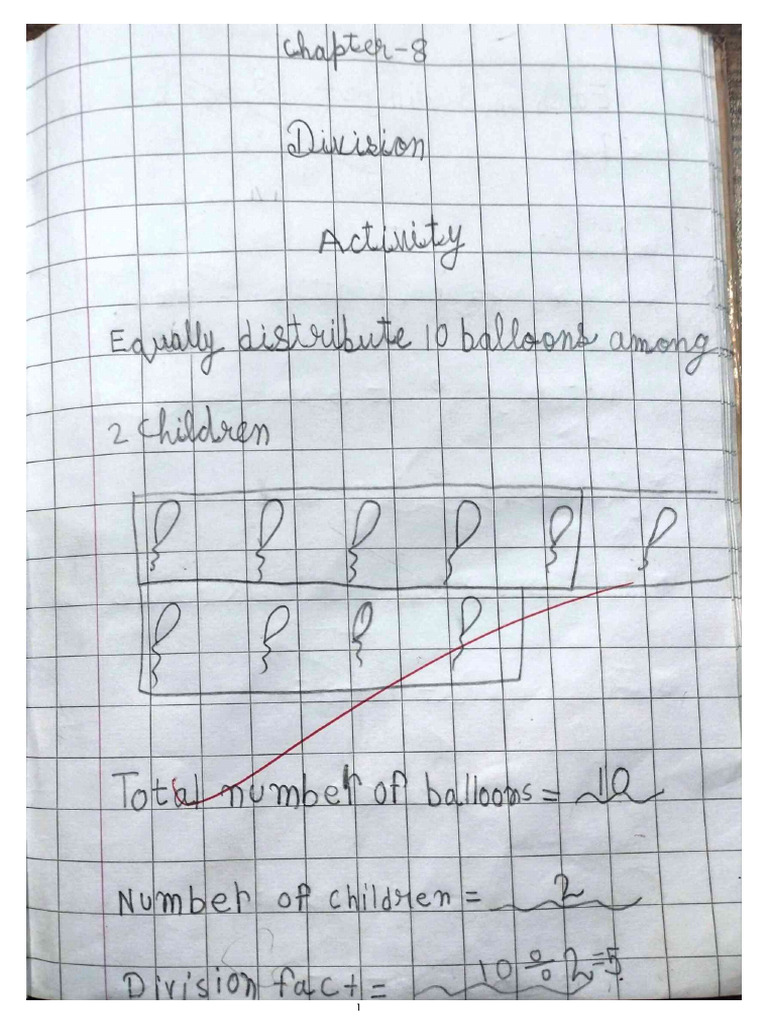 Chapter-8
Division
Activity
Equally distribute 10 balloons among
2 children
Total number of balloons = 10
Number of children = 2
Division fact = 10 ÷ 2 = 5
1